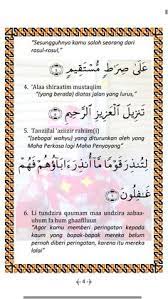 "Sesungguhnya kamu salah seorang dari
rasul-rasul,"
عَلَىٰ صِرَٰطٍ مُّسْتَقِيمٍ ۝
4. 'Alaa shiraatim mustaqiim
"(yang berada) diatas jalan yang lurus,"
تَنزِيلَ ٱلْعَزِيزِ ٱلرَّحِيمِ ۝
5. Tanziilal 'aziizir rahiim(i)
"(sebagai wahyu) yang diturunkan oleh yang
Maha Perkasa lagi Maha Penyayang"
لِتُنذِرَ قَوْمًا مَّآ أُنذِرَ ءَابَآؤُهُمْ فَهُمْ
غَٰفِلُونَ ۝
6. Li tundzira qaumam maa undzira aabaa-
uhum fa hum ghaafiluun(a)
"Agar kamu memberi peringatan kepada
kaum yang bapak-bapak mereka belum
pernah diberi peringatan, karena itu mereka
lalai"
4